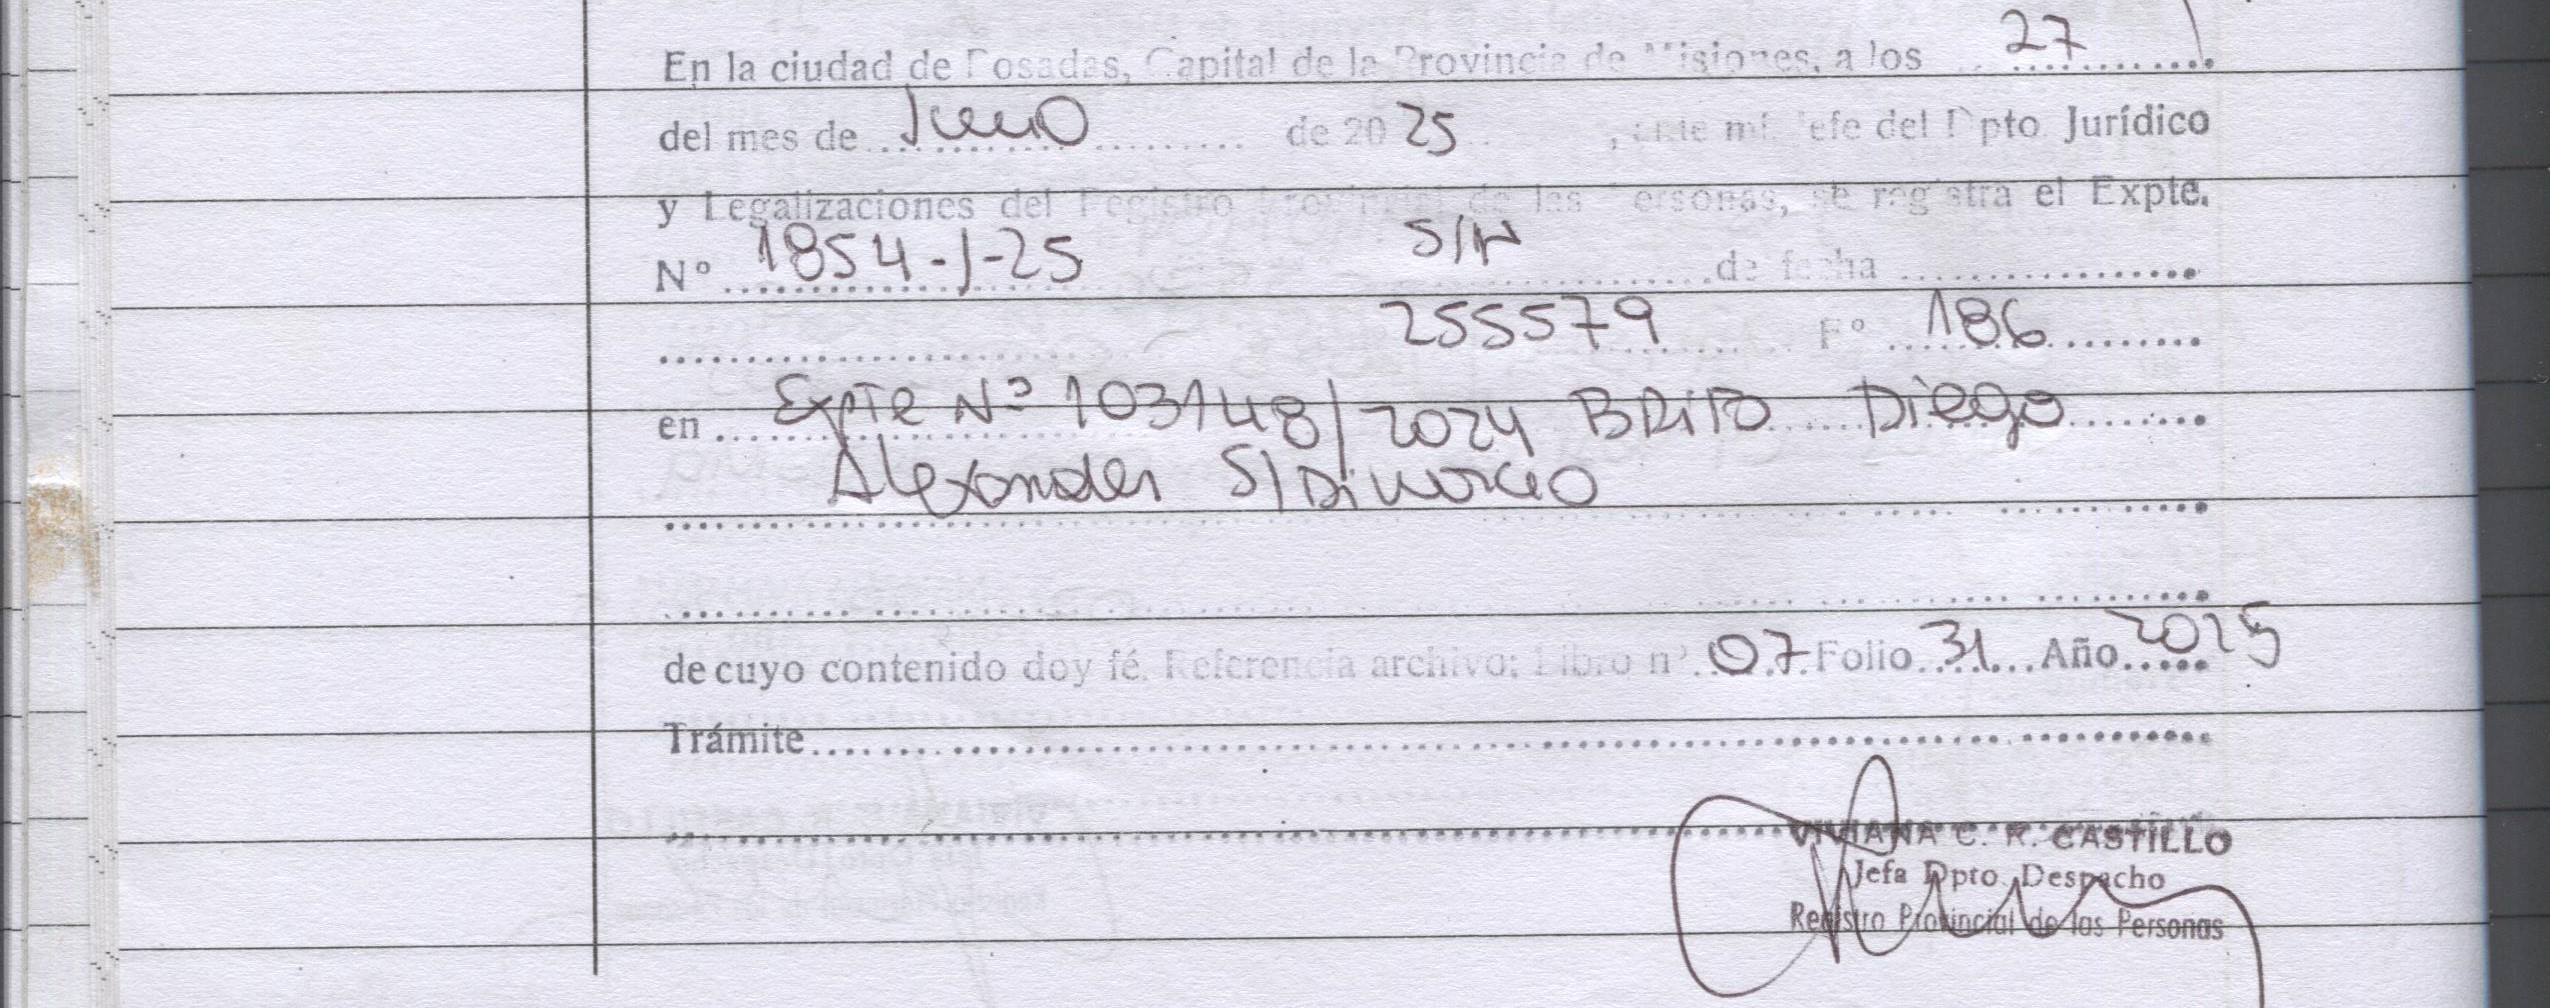 En la ciudad de Posadas, Capital de la Provincia de Misiones, a los 27
del mes de Junio de 2025, ante mí Jefe del Dpto. Jurídico
y Legalizaciones del Registro Provincial de las Personas, se registra el Expte.
Nº 1854-J-25 S/N de fecha
255579 Fº 186
en Expte Nº 103148/2024 BRITO Diego
Alexander S/Divorcio
de cuyo contenido doy fé. Referencia archivo: Libro nº 07 Folio 31 Año 2025
Trámite
VIVIANA C. R. CASTILLO
Jefa Dpto. Despacho
Registro Provincial de las Personas